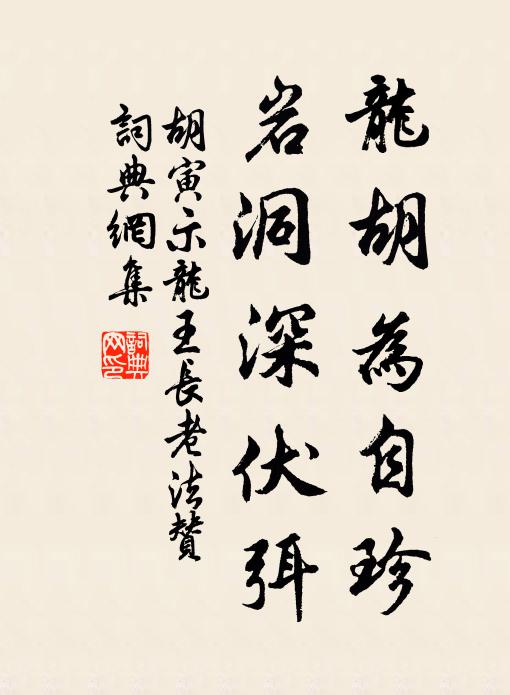 龍胡為自珍
岩洞深伏弭
胡寅示龍王長老法贊
詞典網集
詞典網印